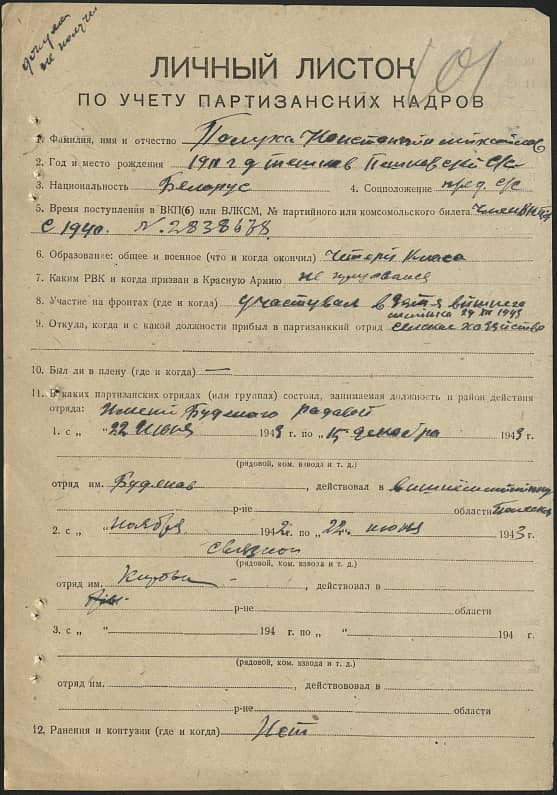 не получ
101
ЛИЧНЫЙ ЛИСТОК
ПО УЧЕТУ ПАРТИЗАНСКИХ КАДРОВ
1. Фамилия, имя и отчество Полуха Константин
2. Год и место рождения 1911 г д с/с
3. Национальность Беларус 4. Соцположение пред. с/с
5. Время поступления в ВКП(б) или ВЛКСМ, № партийного или комсомольского билета член
с 1940. N. 2838678
6. Образование: общее и военное (что и когда окончил) Чтери класа
7. Каким РВК и когда призван в Красную Армию не
8. Участие на фронтах (где и когда) участувал
29 XII 1943
9. Откула, когда и с какой должности прибыл в партизанккий отряд селское хозяйство
10. Был ли в плену (где и когда) —
11. В каких партизанских отрядах (или группах) состоял, занимаемая должность и район действия
отряда: Имени Буденого радавой
1. с „ "22 Июня 1943 г. по „ 15 декабра 1943 г.
(рядовой, ком. взвода и т. д.)
отряд им. Буденав, действовал в
р-не области
2. с „ "Ноября 1942 г. по „ 22 июня 1943 г.
связной
(рядовой, ком. взвода и т. д.)
отряд им. Кирова, действовал в
р-не области
3. с „ " 194 г. по „ " 194 г.
(рядовой, ком. взвода и т. д.)
отряд им. , действововал в
р-не области
12. Ранения и контузии (где и когда) Нет